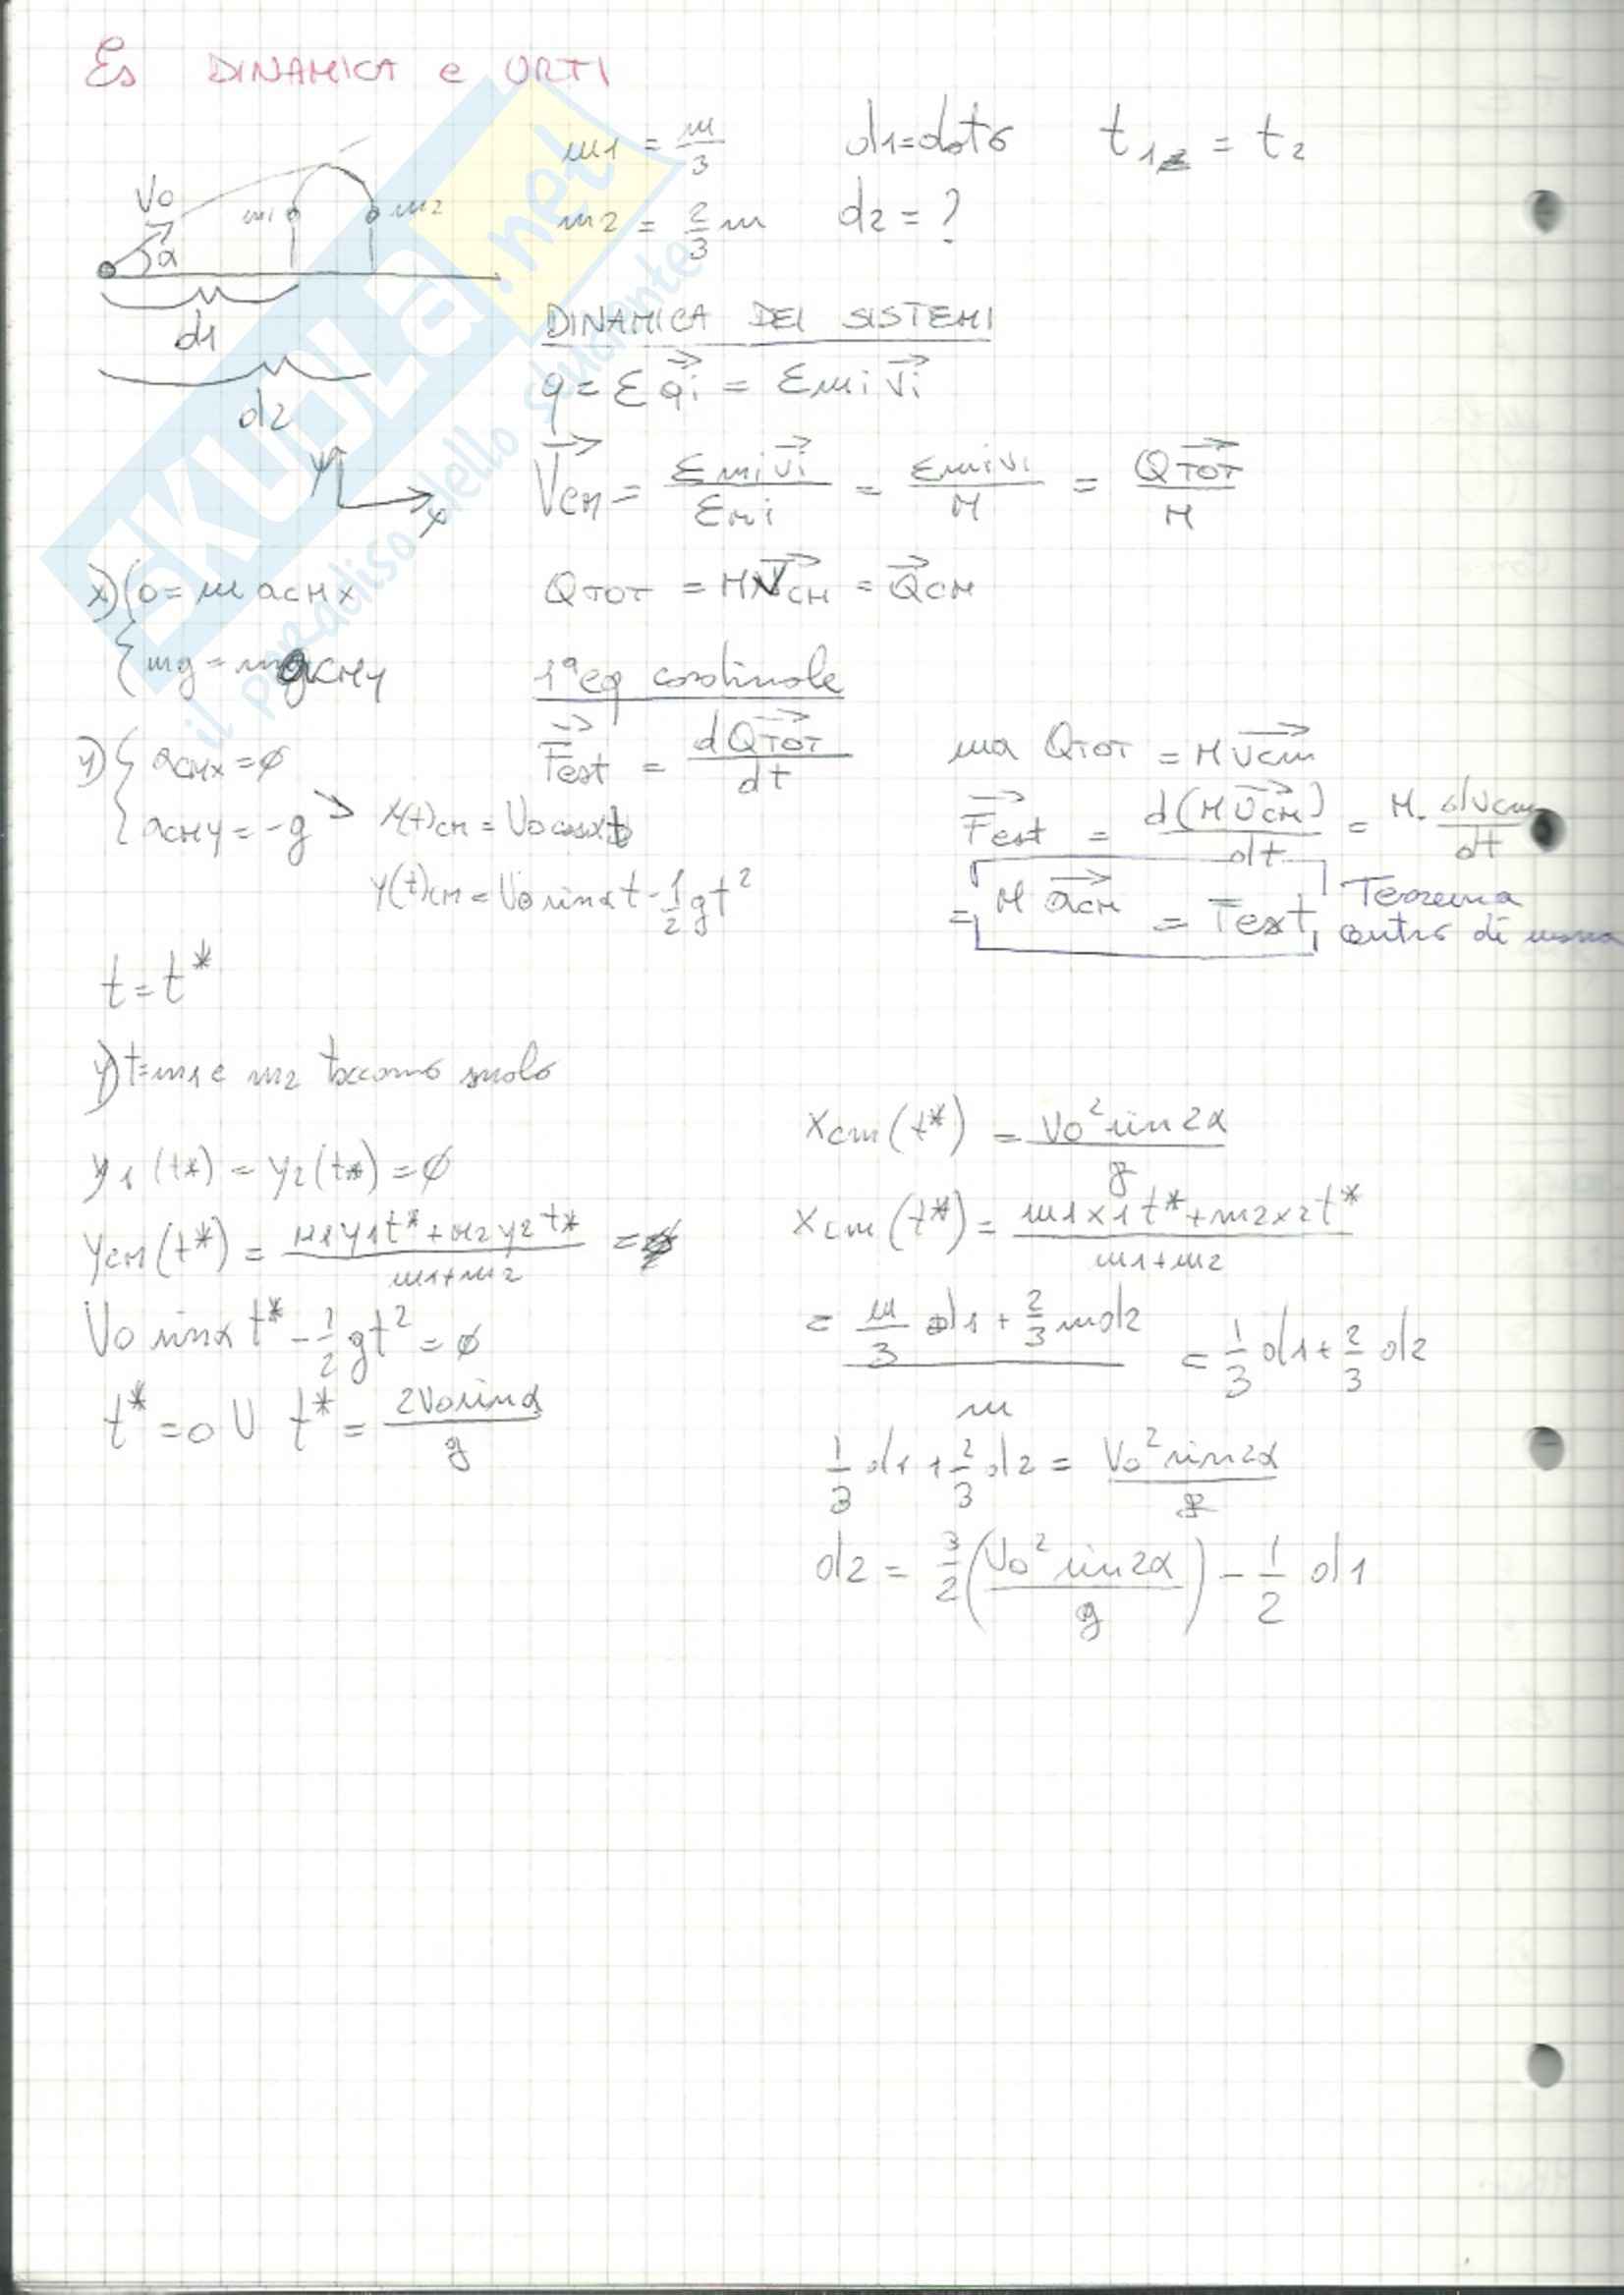 Es DINAMICA e URTI
m1 = m/3 d1=dato t1 = t2
m2 = 2/3 m d2 = ?
V0 α m1 m2
d1
d2
y x
DINAMICA DEI SISTEMI
q = Σ qi = Σ mi vi
Vcm = Σ mi vi / Σ mi = Σ mi vi / M = QTOT / M
QTOT = M VCM = QCM
x) { 0 = m aCMx
{ mg = m aCMy
1ª eq cardinale
Fest = dQTOT / dt ma QTOT = M Vcm
Fest = d(M VCM) / dt = M · dVcm / dt
= M aCM = Fest Teorema centro di massa
y) { aCMx = ø
{ aCMy = -g > x(t)CM = V0 cosα t
y(t)CM = V0 sinα t - 1/2 g t²
t = t*
y) t = m1 e m2 toccano suolo
y1 (t*) = y2 (t*) = ø
yCM (t*) = m1 y1 t* + m2 y2 t* / m1+m2 = ø
V0 sinα t* - 1/2 g t² = ø
t* = 0 U t* = 2V0 sinα / g
xcm (t*) = V0² sin2α / g
xcm (t*) = m1 x1 t* + m2 x2 t* / m1+m2
= m/3 d1 + 2/3 m d2 / m = 1/3 d1 + 2/3 d2
1/3 d1 + 2/3 d2 = V0² sin2α / g
d2 = 3/2 (V0² sin2α / g) - 1/2 d1
SKUOLA.net
il paradiso dello studente